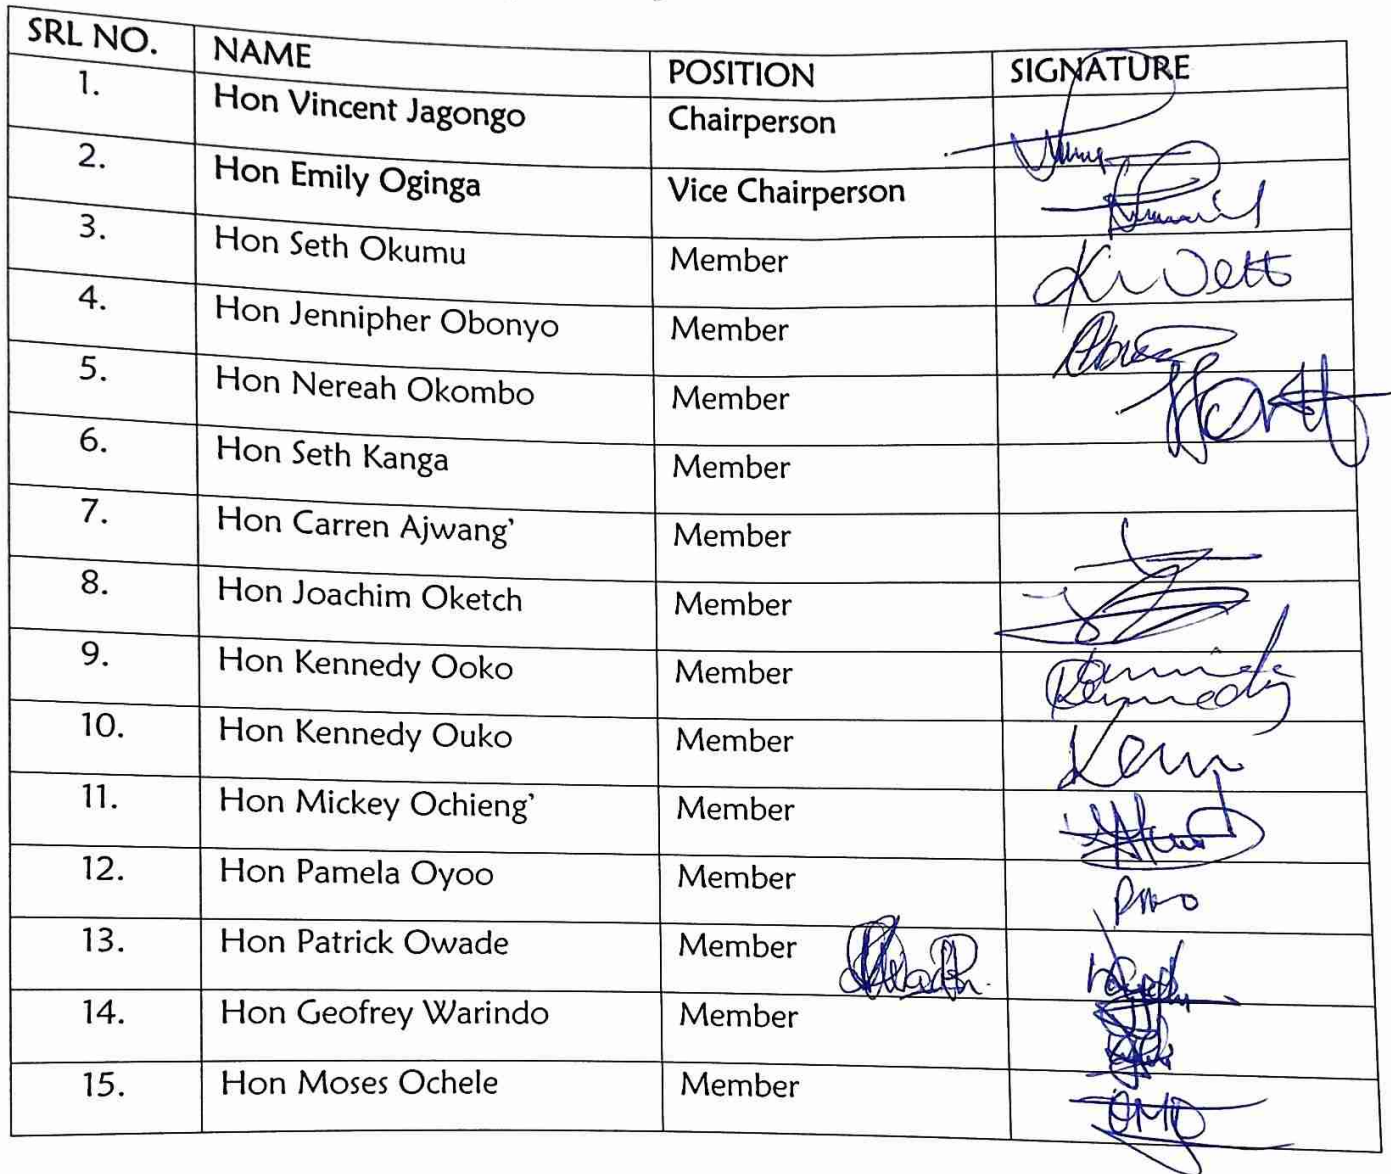 SRL NO. NAME POSITION SIGNATURE
1. Hon Vincent Jagongo Chairperson
2. Hon Emily Oginga Vice Chairperson
3. Hon Seth Okumu Member
4. Hon Jennipher Obonyo Member
5. Hon Nereah Okombo Member
6. Hon Seth Kanga Member
7. Hon Carren Ajwang’ Member
8. Hon Joachim Oketch Member
9. Hon Kennedy Ooko Member Kennedy
10. Hon Kennedy Ouko Member
11. Hon Mickey Ochieng’ Member
12. Hon Pamela Oyoo Member
13. Hon Patrick Owade Member
14. Hon Geofrey Warindo Member
15. Hon Moses Ochele Member